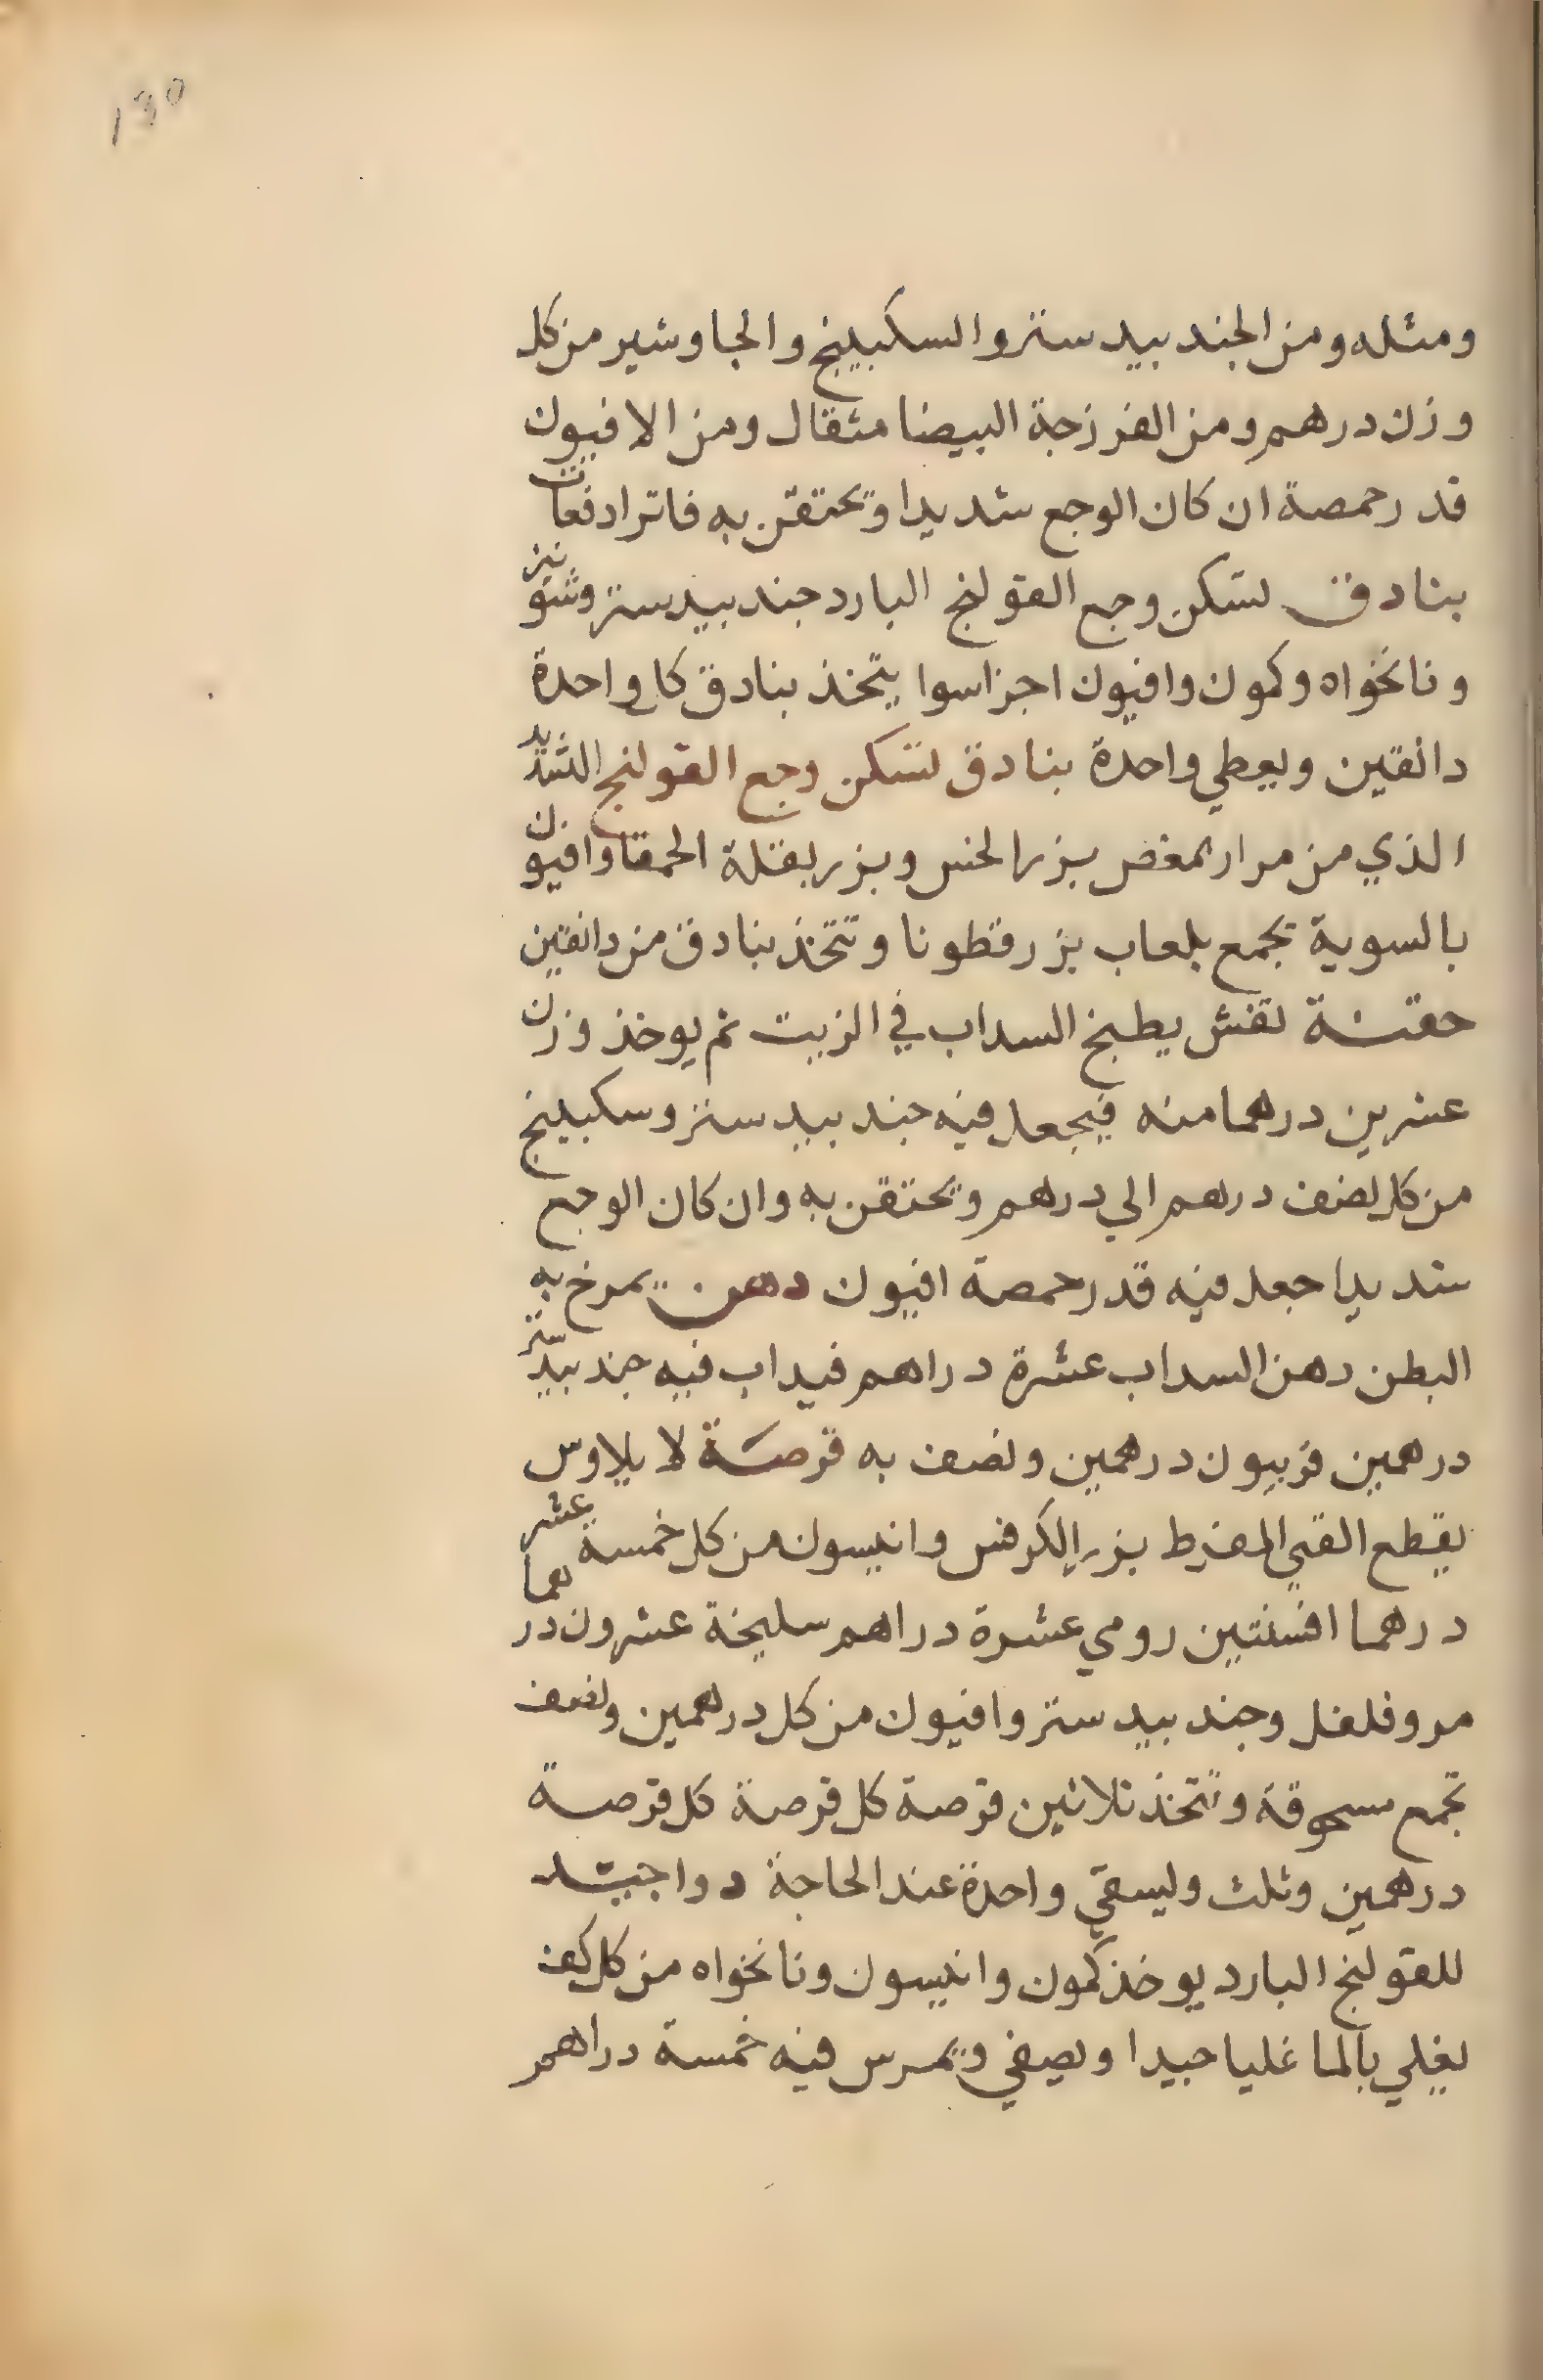 130
ومثله ومن الجند بيد ستر والسكبينج والجاوشير من كل
وزن درهم ومن الفرزجة البيضا مثقال ومن الافيون
قدر حمصة ان كان الوجع شديدا ويحتقن به فاترا دفعات
بنادق تسكن وجع القولنج البارد جند بيد ستر وشونيز
ونانخواه وكمون وافيون اجزا سوا يتخذ بنادق كل واحدة
دانقين ويعطي واحدة بنادق تسكن وجع القولنج الشديد
الذي من مرار يمغص بزر الخس وبزر بقلة الحمقا وافيون
بالسوية تجمع بلعاب بزر قطونا وتتخذ بنادق من دانقين
حقنة تفش يطبخ السداب في الزيت ثم يوخذ وزن
عشرين درهما منه فيجعل فيه جند بيد ستر وسكبينج
من كل نصف درهم الي درهم ويحتقن به وان كان الوجع
شديدا جعل فيه قدر حمصة افيون دهن يمرخ به
البطن دهن السداب عشرة دراهم فيداب فيه جند بيد ستر
درهمين فربيون درهمين ونصف به قرصة لايلاوس
يقطع القي المفرط بزر الكرفس وانيسون من كل خمسة عشر
درهما افسنتين رومي عشرة دراهم سليخة عشرون درهما
مر وفلفل وجند بيد ستر وافيون من كل درهمين ونصف
تجمع مسحوقة وتتخذ ثلاثين قرصة كل قرصة كل قرصة
درهمين وثلث وليسقي واحدة عند الحاجة دوا جيد
للقولنج البارد يوخذ كمون وانيسون ونانخواه من كل كف
يغلي بالما غليا جيدا ويصفي ويمرس فيه خمسة دراهم